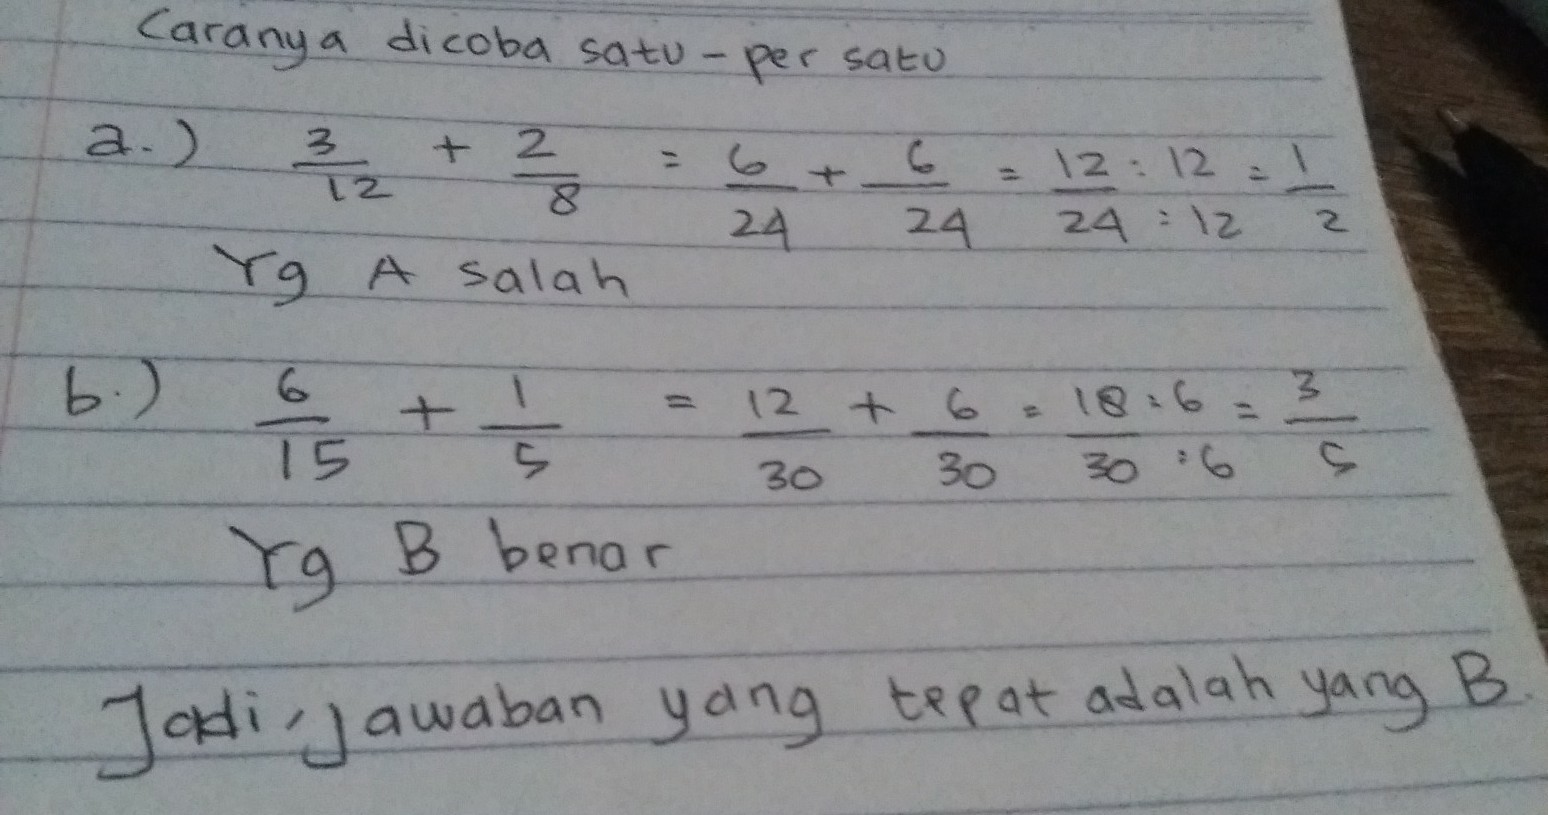 Caranya dicoba satu-per satu
a.) 3/12 + 2/8 = 6/24 + 6/24 = 12:12/24:12 = 1/2
Yg A salah
b.) 6/15 + 1/5 = 12/30 + 6/30 = 18:6/30:6 = 3/5
Yg B benar
Jadi, jawaban yang tepat adalah yang B.